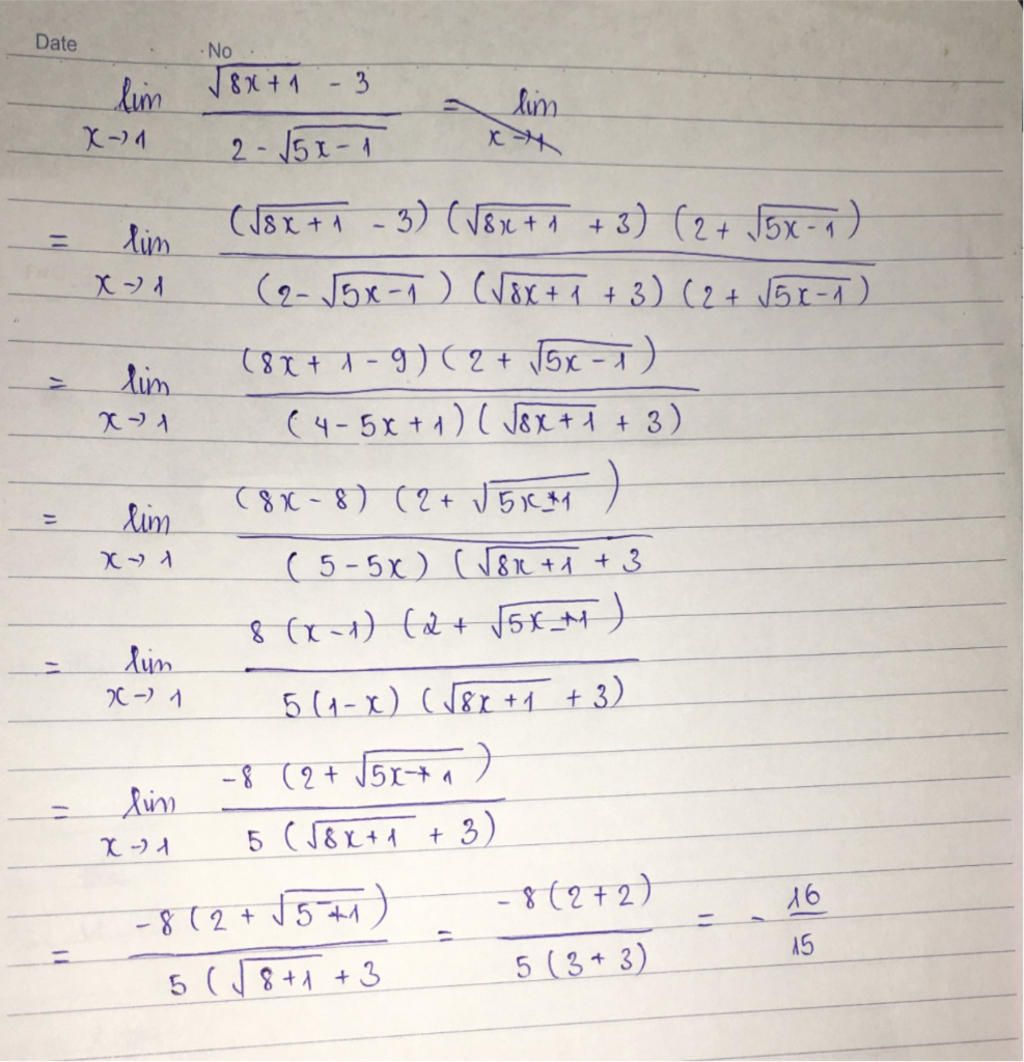 Date No
lim x→1 (√(8x+1) - 3) / (2 - √(5x-1)) = lim x→1
= lim x→1 ((√(8x+1) - 3) (√(8x+1) + 3) (2 + √(5x-1))) / ((2 - √(5x-1)) (√(8x+1) + 3) (2 + √(5x-1)))
= lim x→1 ((8x + 1 - 9) (2 + √(5x-1))) / ((4 - 5x + 1) (√(8x+1) + 3))
= lim x→1 ((8x - 8) (2 + √(5x-1))) / ((5 - 5x) (√(8x+1) + 3
= lim x→1 (8 (x-1) (2 + √(5x-1))) / (5 (1-x) (√(8x+1) + 3))
= lim x→1 (-8 (2 + √(5x-1))) / (5 (√(8x+1) + 3))
= (-8 (2 + √(5-1))) / (5 (√(8+1) + 3 = (-8 (2+2)) / (5 (3+3)) = - 16/15